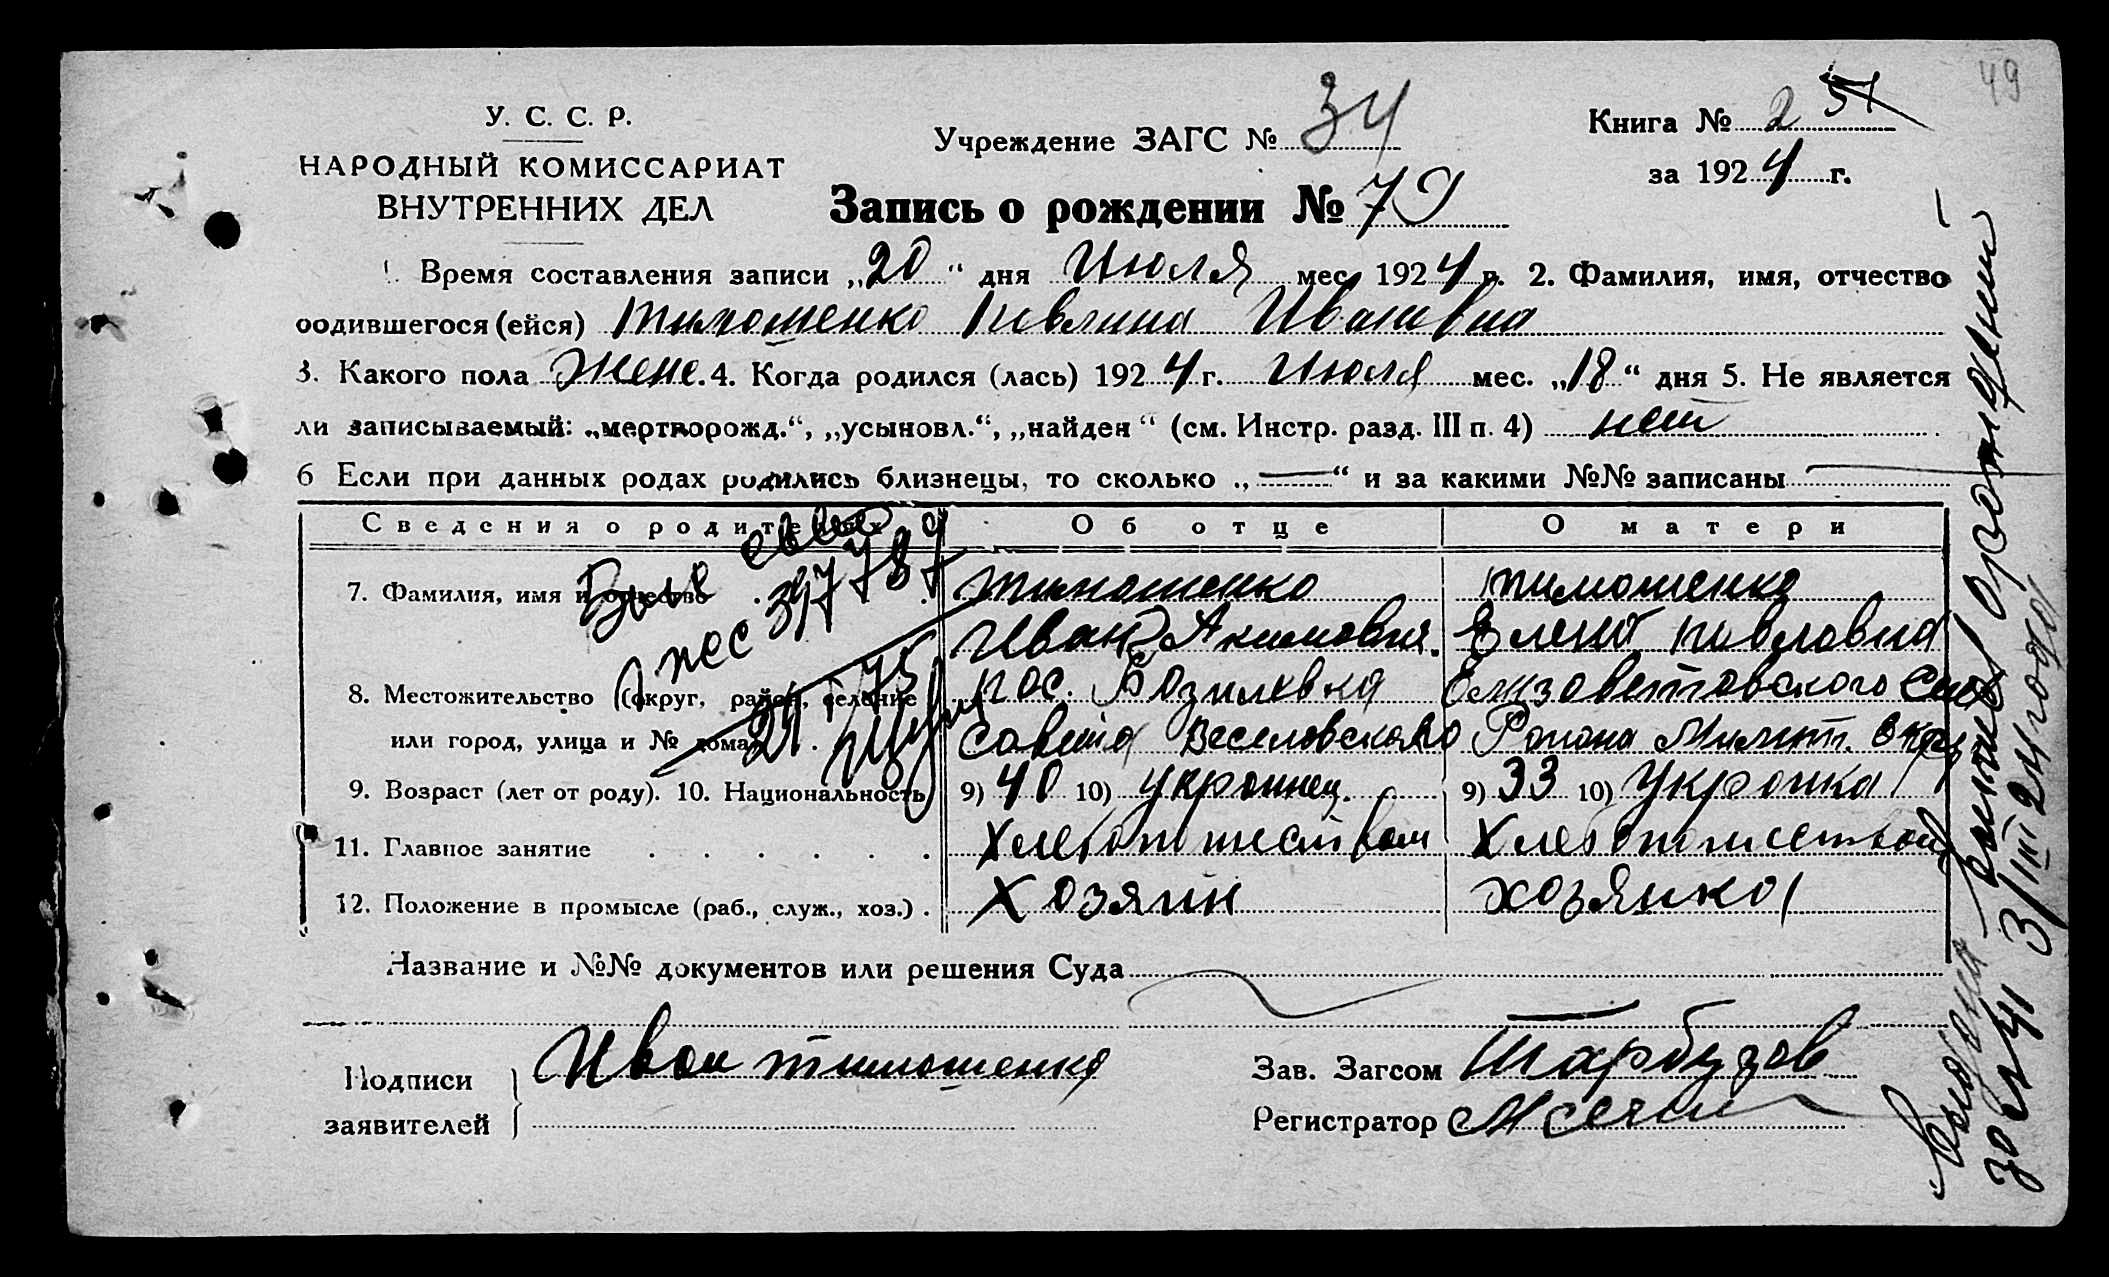 49
У. С. С. Р.
НАРОДНЫЙ КОМИССАРИАТ
ВНУТРЕННИХ ДЕЛ
Учреждение ЗАГС № 34
Книга № 2
за 1924 г.
Запись о рождении № 79
1. Время составления записи „20“ дня Июля мес. 1924 г. 2. Фамилия, имя, отчество
родившегося (ейся) Тимошенко Павлина Ивановна
3. Какого пола Женс. 4. Когда родился (лась) 1924 г. Июля мес. „18“ дня 5. Не является
ли записываемый: „мертворожд.“, „усыновл.“, „найден“ (см. Инстр. разд. III п. 4) нет
6 Если при данных родах родились близнецы, то сколько „—“ и за какими №№ записаны
Сведения о родителях Об отце О матери
7. Фамилия, имя и отчество Тимошенко Тимошенко
Иван Акимович. Елена Павловна
8. Местожительство (округ, район, селение пос. Елизаветовского Сель
или город, улица и № дома) Совета Веселовского Района Мелит. Окр
9. Возраст (лет от роду). 10. Национальность 9) 40 10) Украинец. 9) 33 10) Украинка
11. Главное занятие Хлебопашеством Хлебопашеством
12. Положение в промысле (раб., служ., хоз.) Хозяин хозяйка
Название и №№ документов или решения Суда
Подписи
заявителей
Иван Тимошенко
Зав. Загсом Тарбузов
Регистратор
Выдана выпись о рождении
за № 41 3/III 24 года